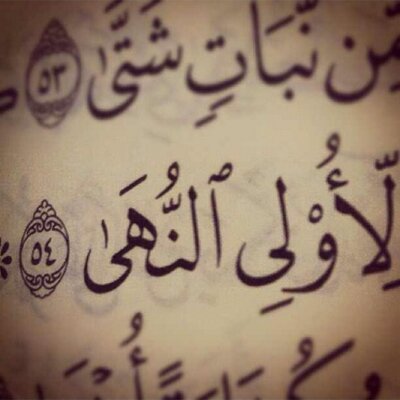 مِّن نَّبَاتٍ شَتَّىٰ ٥٣
لِّأُو۟لِي ٱلنُّهَىٰ ٥٤